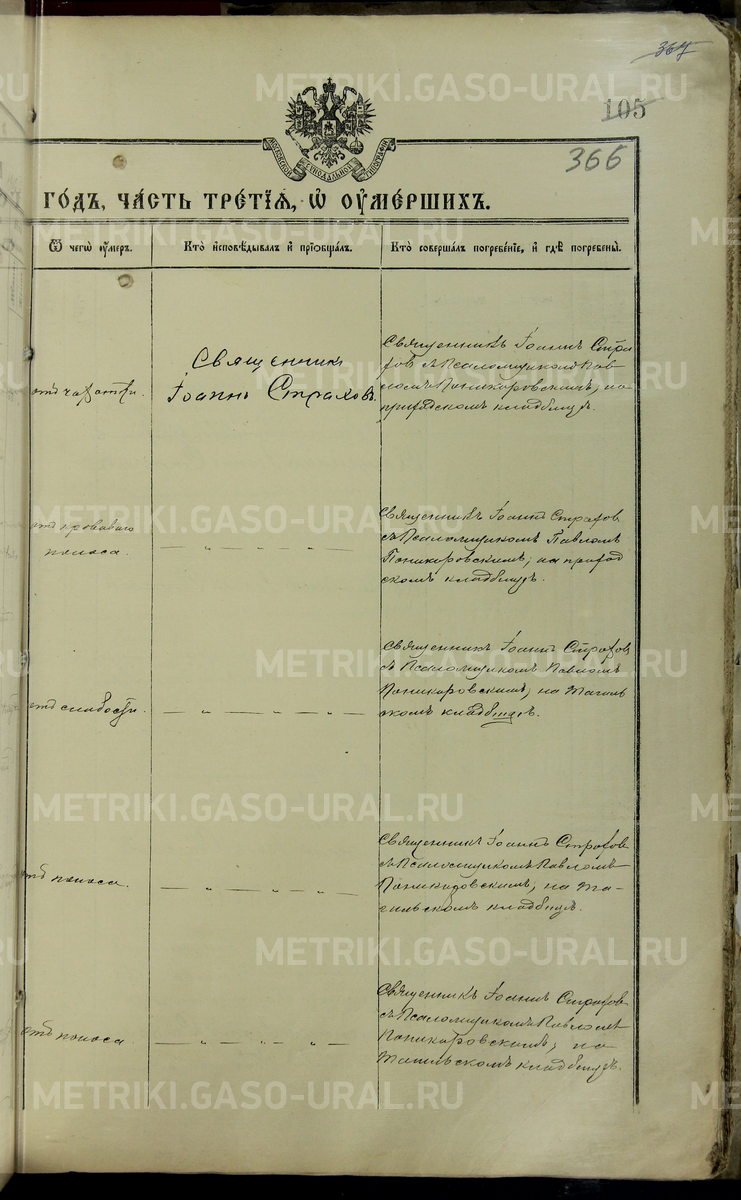 367
105
366
МОСКОВСКОЙ СѴНОДАЛЬНОЙ ТИПОГРАФІИ
ГО́ДЪ, ЧА́СТЬ ТРЕ́ТЇѦ, Ѡ҆ ОУ҆МЕ́РШИХЪ.
Ѿ чегѡ̀ оу҆́меръ.
Кто̀ и҆сповѣ́дывалъ и҆ прїѡбща́лъ.
Кто̀ соверша́лъ погребе́нїе, и҆ гдѣ̀ погребены̀.
отъ чахотки.
Священникъ
Іоаннъ Страховъ
Священникъ Іоаннъ Стра
ховъ съ Псаломщикомъ Пав
ломъ Поникаровскимъ, на
приходскомъ кладбищѣ.
отъ кроваваго
поноса.
— „ — „ — „ —
Священникъ Іоаннъ Страховъ
съ Псаломщикомъ Павломъ
Поникаровскимъ, на приход
скомъ кладбищѣ.
отъ слабости.
— „ — „ — „ —
Священникъ Іоаннъ Страховъ
съ Псаломщикомъ Павломъ
Поникаровскимъ, на Тагиль
скомъ кладбищѣ.
отъ поноса.
— „ — „ — „ —
Священникъ Іоаннъ Страховъ
съ Псаломщикомъ Павломъ
Поникаровскимъ, на Та-
гильскомъ кладбищѣ.
отъ поноса.
— „ — „ — „ —
Священникъ Іоаннъ Страховъ
съ Псаломщикомъ Павломъ
Поникаровскимъ, на
Тагильскомъ кладбищѣ.
METRIKI.GASO-URAL.RU